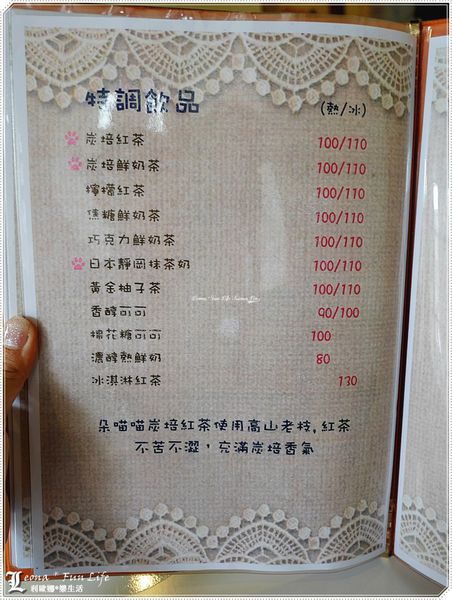 特調飲品 (熱/冰)
炭焙紅茶 100/110
炭焙鮮奶茶 100/110
檸檬紅茶 100/110
焦糖鮮奶茶 100/110
巧克力鮮奶茶 100/110
日本靜岡抹茶奶 100/110
黃金柚子茶 100/110
香醇可可 90/100
棉花糖可可 100
濃醇熱鮮奶 80
冰淇淋紅茶 130
朵喵喵炭焙紅茶使用高山老枝,紅茶
不苦不澀,充滿炭焙香氣
Leona * Fun Life
利歐娜*戀生活